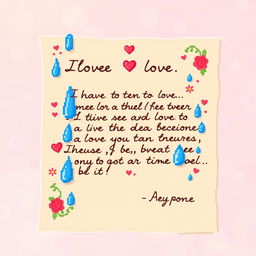 I lovee love.
I have to ten to love...
mee lor a thuel lfee tveer
I tiive see and love to
a live the dea beceione
a love you tan heures,
Iheuse , f be,, bveat ee
ony to got ar time oel..
be it!
- Aey pone